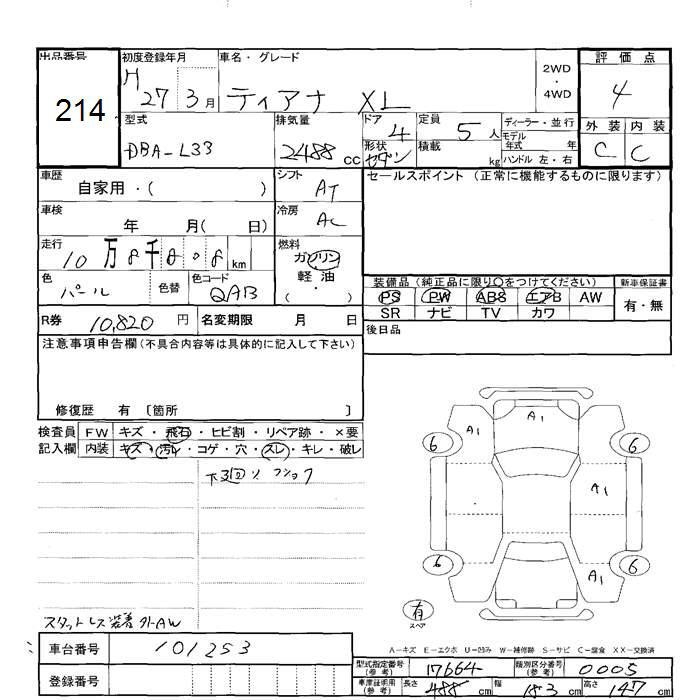 出品番号 初度登録年月 車名・グレード 2WD ・ 4WD 評価点
214 H 27 3月 ティアナ XL 4
型式 排気量 ドア 定員 ディーラー・並行 外装 内装
DBA-L33 2488 cc 4 5人 モデル年式 年 C C
形状 セダン 積載 kg ハンドル 左・右
車歴 自家用・( ) シフト AT セールスポイント (正常に機能するものに限ります)
車検 年 月( 日) 冷房 AC
走行 10万8千 km 燃料 ガソリン 軽・油 ( ・ )
色 パール 色替 色コード QAB
装備品 (純正品に限り○をつけてください) 新車保証書
PS PW ABS エアB AW 有・無
SR ナビ TV カワ
R券 10,820 円 名変期限 月 日 後日品
注意事項申告欄 (不具合内容等は具体的に記入して下さい)
修復歴 有 〔箇所 〕
検査員 FW キズ・飛石・ヒビ割・リペア跡・×要
記入欄 内装 キズ・汚レ・コゲ・穴・スレ・キレ・破レ
A1 A1
6 6
A1
6 6
A1
有 スペア
スタットレス装着 外AW
A-キズ E-エクボ U-凹み W-補修跡 S-サビ C-腐食 XX-交換済
車台番号 101253
型式指定番号 (参考) 17664 類別区分番号 (参考) 0005
登録番号
車庫証明用 (参考) 長さ 488 cm 幅 183 cm 高さ 147 cm